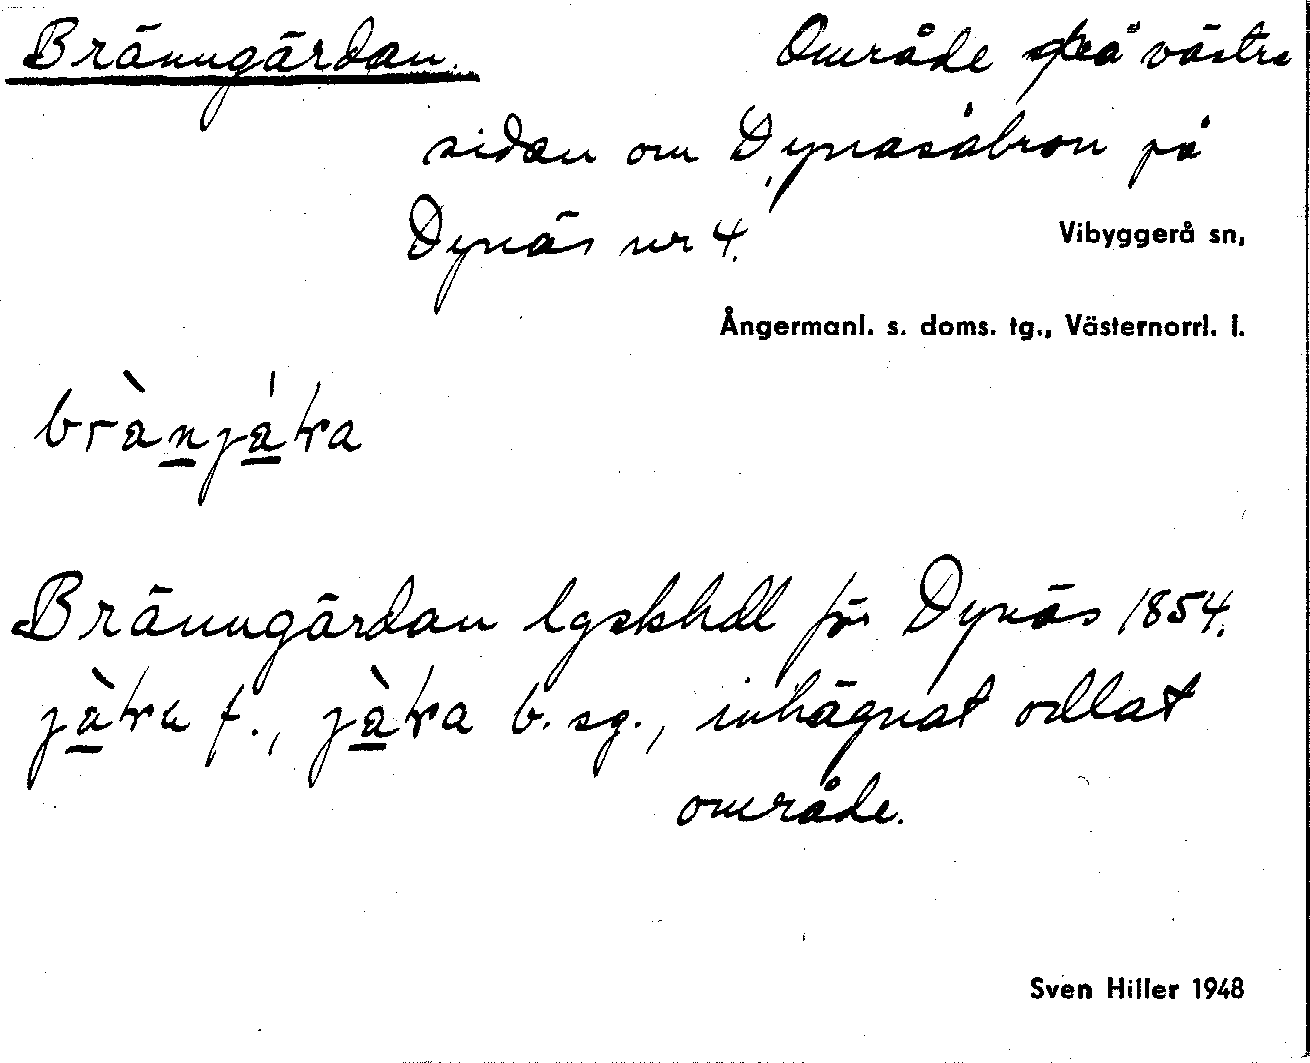 Bränngärdan. Område på västra
sidan om Dynäsåbron på
Dynäs nr 4.
Vibyggerå sn,
Ångermanl. s. doms. tg., Västernorrl. l.
Bränngärdan lgskhdl för Dynäs 1854.
f., b. sg., inhägnat odlat
område.
Sven Hiller 1948